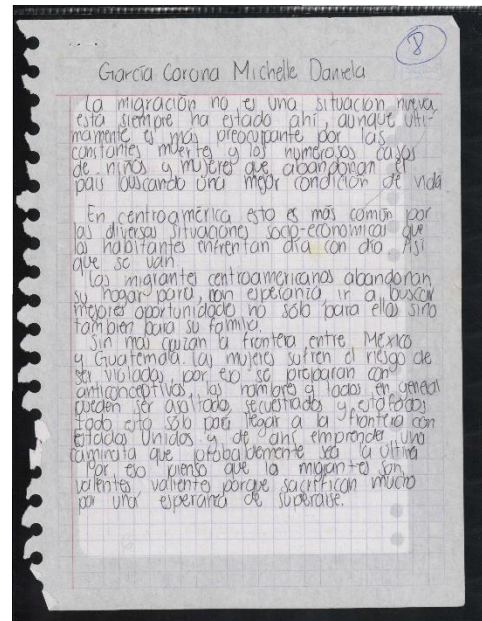 8
García Corona Michelle Daniela
La migración no es una situación nueva,
esta siempre ha estado ahí, aunque ulti-
mamente es más preocupante por las
constantes muertes y los numerosos casos
de niños y mujeres que abandonan el
país buscando una mejor condición de vida
En centroamérica esto es más común por
las diversas situaciones socio-económicas que
los habitantes enfrentan día con día. Así
que se van.
Los migrantes centroamericanos abandonan
su hogar para, con esperanza ir a buscar
mejores oportunidades no sólo para ellos sino
tambien para su familia.
Sin más cruzan la frontera entre México
y Guatemala. Las mujeres sufren el riesgo de
ser violadas por eso se preparan con
anticonceptivos, los hombres y todos en general
pueden ser asaltados, secuestrados y estafados
todo esto sólo para llegar a la frontera con
Estados Unidos y de ahí emprender una
caminata que probablemente sea la última
Por eso pienso que la migrantes son
valientes valiente porque sacrifican mucho
por una esperanza de superarse.